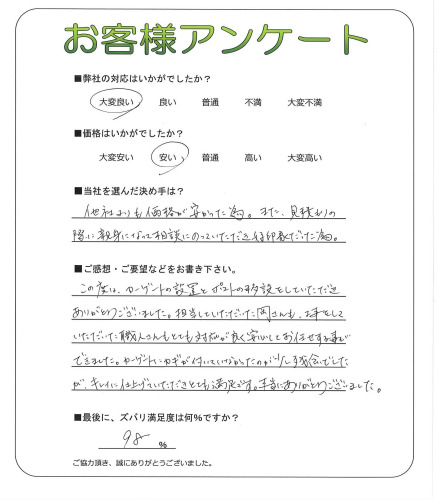 お客様アンケート
■弊社の対応はいかがでしたか？
大変良い 良い 普通 不満 大変不満
■価格はいかがでしたか？
大変安い 安い 普通 高い 大変高い
■当社を選んだ決め手は？
他社よりも価格が安かった為。また、見積もりの
際に親身になって相談にのっていただき好印象だった為。
■ご感想・ご要望などをお書き下さい。
この度は、カーゲートの設置とポストの移設をしていただき
ありがとうございました。担当していただいた岡さんも、お手をして
いただいた職人さんもとても対応が良く安心してお任せする事が
できました。カーゲートにカギが付いていなかったのが少し残念でした
が、キレイに仕上げていただきとても満足です。本当にありがとうございました。
■最後に、ズバリ満足度は何%ですか？
98 %
ご協力頂き、誠にありがとうございました。